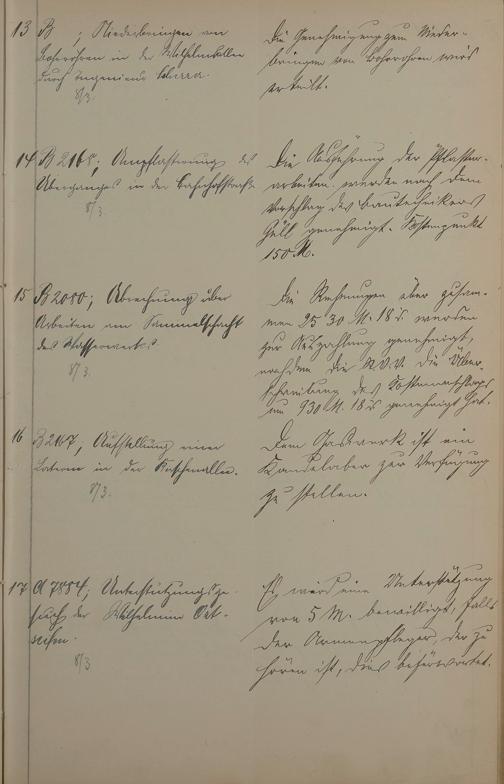 13 B ; Niederbringen von
Bohrröhren in der Wilhelmsallee
durch Ingenieur
8/3.
Die Genehmigung zum Nieder-
bringen von Bohrröhren wird
erteilt.
14 B 2168; Umpflasterung des
Überganges in der Bahnhofstraße
8/3.
Die Ausführung der Pflaster-
arbeiten werden nach dem
Vorschlag des Bautechnikers
Göll genehmigt. Kostenpunkt
150 M.
15 B 2080; Abrechnung über
Arbeiten am Sammelschacht
des Wasserwerks.
8/3.
Die Rechnungen über zusam-
men 2530 M. 18 werden
zur Auszahlung genehmigt,
nachdem die die Über-
schreitung des Kostenanschlags
um 930 M. 18 genehmigt hat.
16 B 2167, Aufstellung einer
Laterne in der
8/3.
Dem Gaswerk ist ein
Kandelaber zur Verfügung
zu stellen.
17 A 7884; Unterstützungsge-
such der Wilhelmine
8/3.
Es wird eine Unterstützung
von 5 M. bewilligt, falls
der Armenpfleger, der zu
hören ist, dies befürwortet.